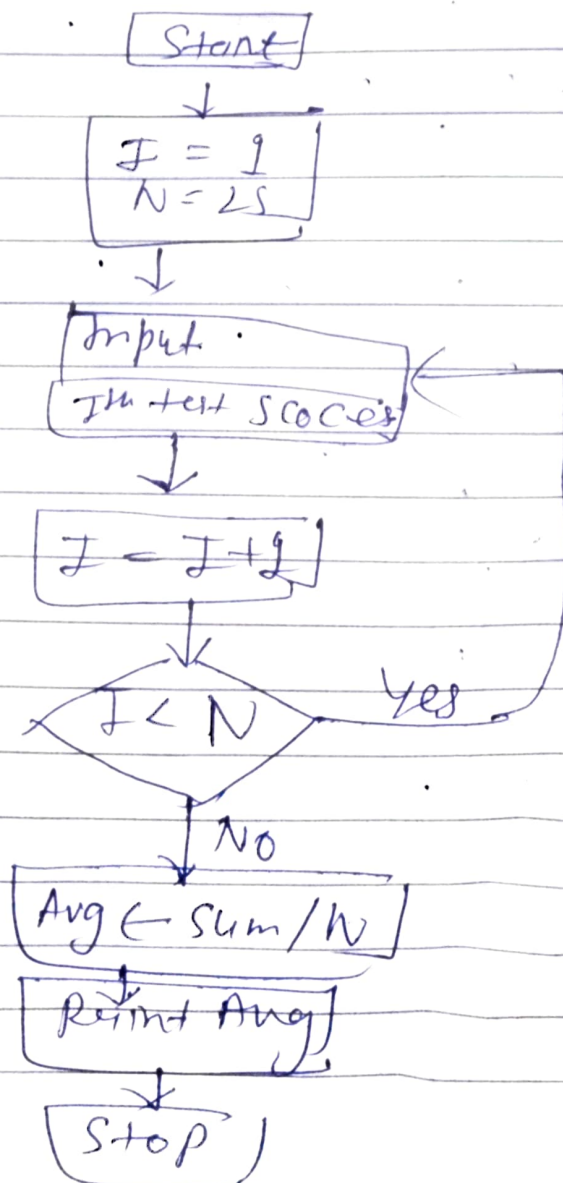 Start
I = 1
N = 25
Input
Ith test scoces
I = I + 1
I < N
Yes
No
Avg ← Sum / N
Print Avg
Stop